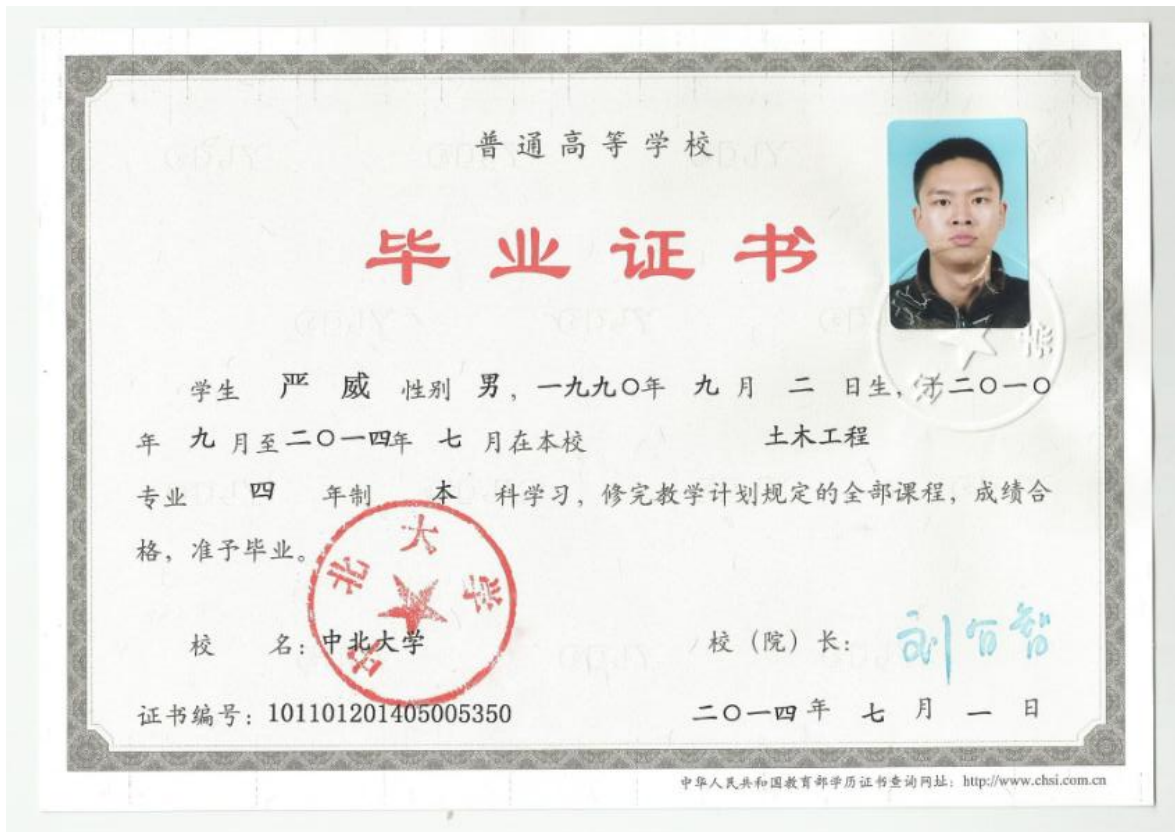 普通高等学校
毕业证书
学生 严威 性别 男，一九九〇年 九 月 二 日生，于二〇一〇
年 九 月至二〇一四年 七 月在本校 土木工程
专业 四 年制 本 科学习，修完教学计划规定的全部课程，成绩合
格，准予毕业。
中北大学
校 名：中北大学 校（院）长：刘有智
证书编号：101101201405005350 二〇一四年 七 月 一 日
中华人民共和国教育部学历证书查询网址：http://www.chsi.com.cn